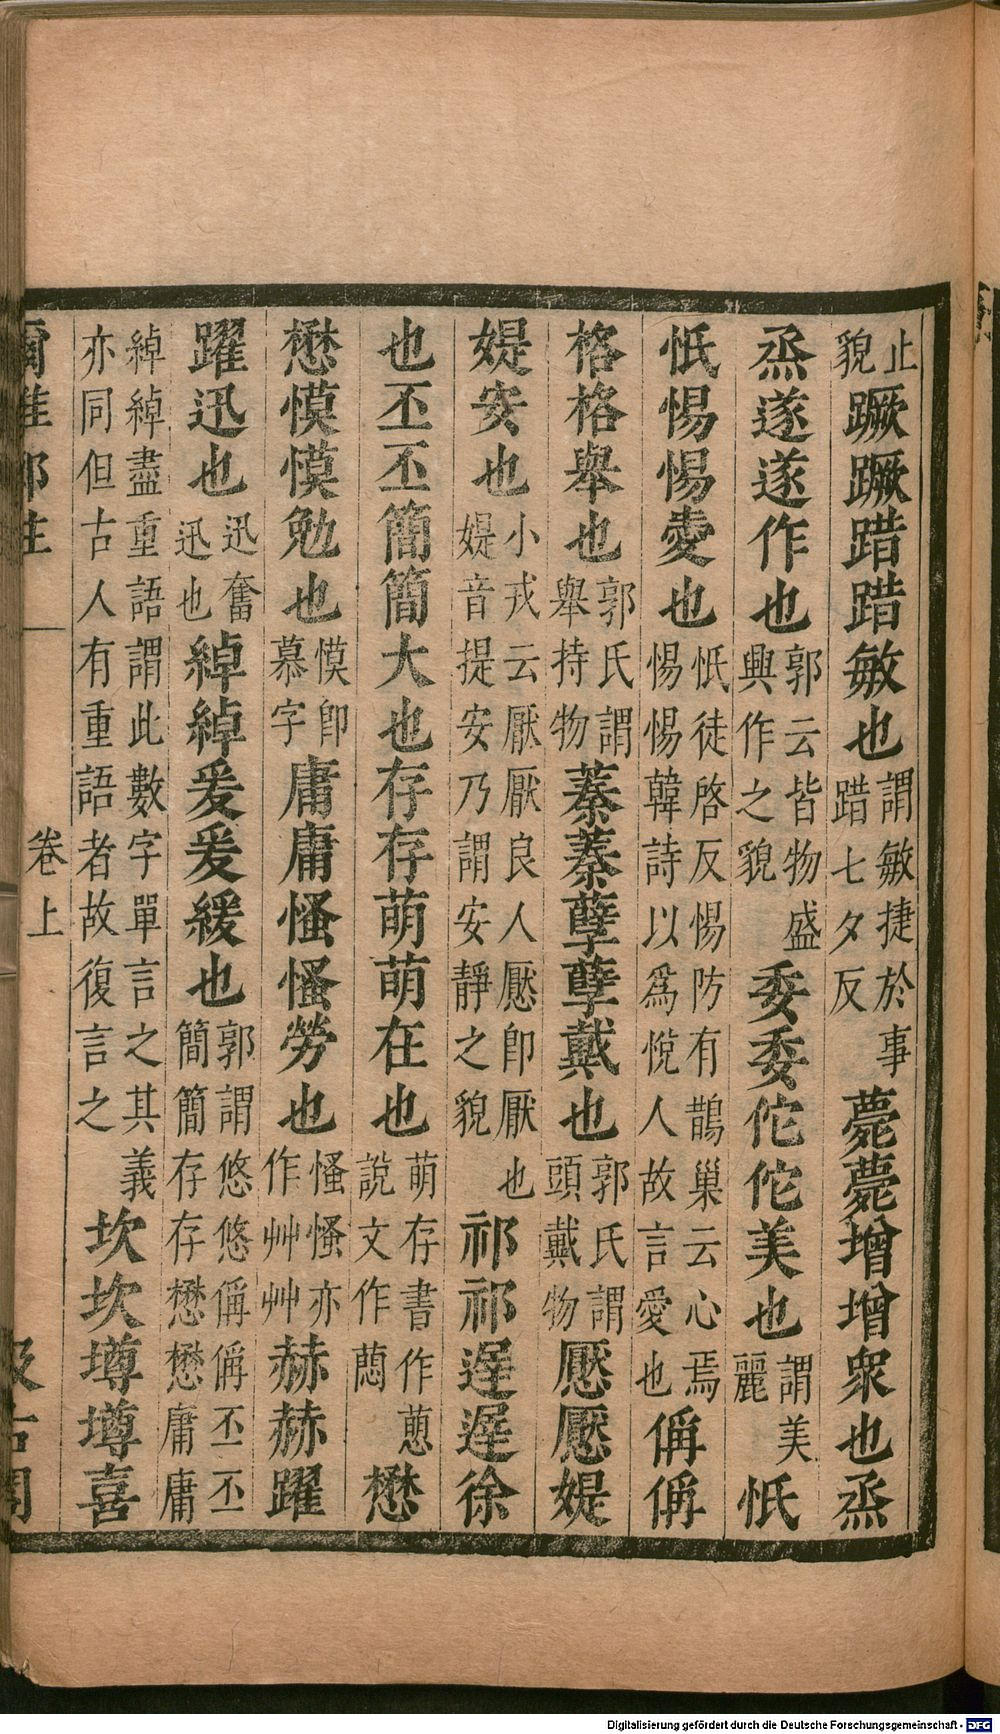 止貌蹶蹶踖踖敏也謂敏捷於事踖七夕反薨薨增增衆也烝
烝遂遂作也郭云皆物盛興作之貌委委佗佗美也謂美麗忯
忯惕惕愛也忯徒啓反惕防有鵲巢云心焉惕惕韓詩以爲悅人故言愛也偁偁
格格舉也郭氏謂舉持物蓁蓁孽孽戴也郭氏謂頭戴物懕懕媞
媞安也小戎云厭厭良人懕卽厭也媞音提安乃謂安靜之貌祁祁遟遟徐
也丕丕簡簡大也存存萌萌在也萌存書作說文作蕄懋
懋慔慔勉也慔卽慕字庸庸慅慅勞也慅慅亦作艸艸赫赫躍
躍迅也迅奮迅也綽綽爰爰緩也郭謂悠悠偁偁丕丕簡簡存存懋懋庸庸
綽綽盡重語謂此數字單言之其義亦同但古人有重語者故復言之坎坎墫墫喜
爾雅鄭注 卷上 汲古閣
Digitalisierung gefördert durch die Deutsche Forschungsgemeinschaft - DFG